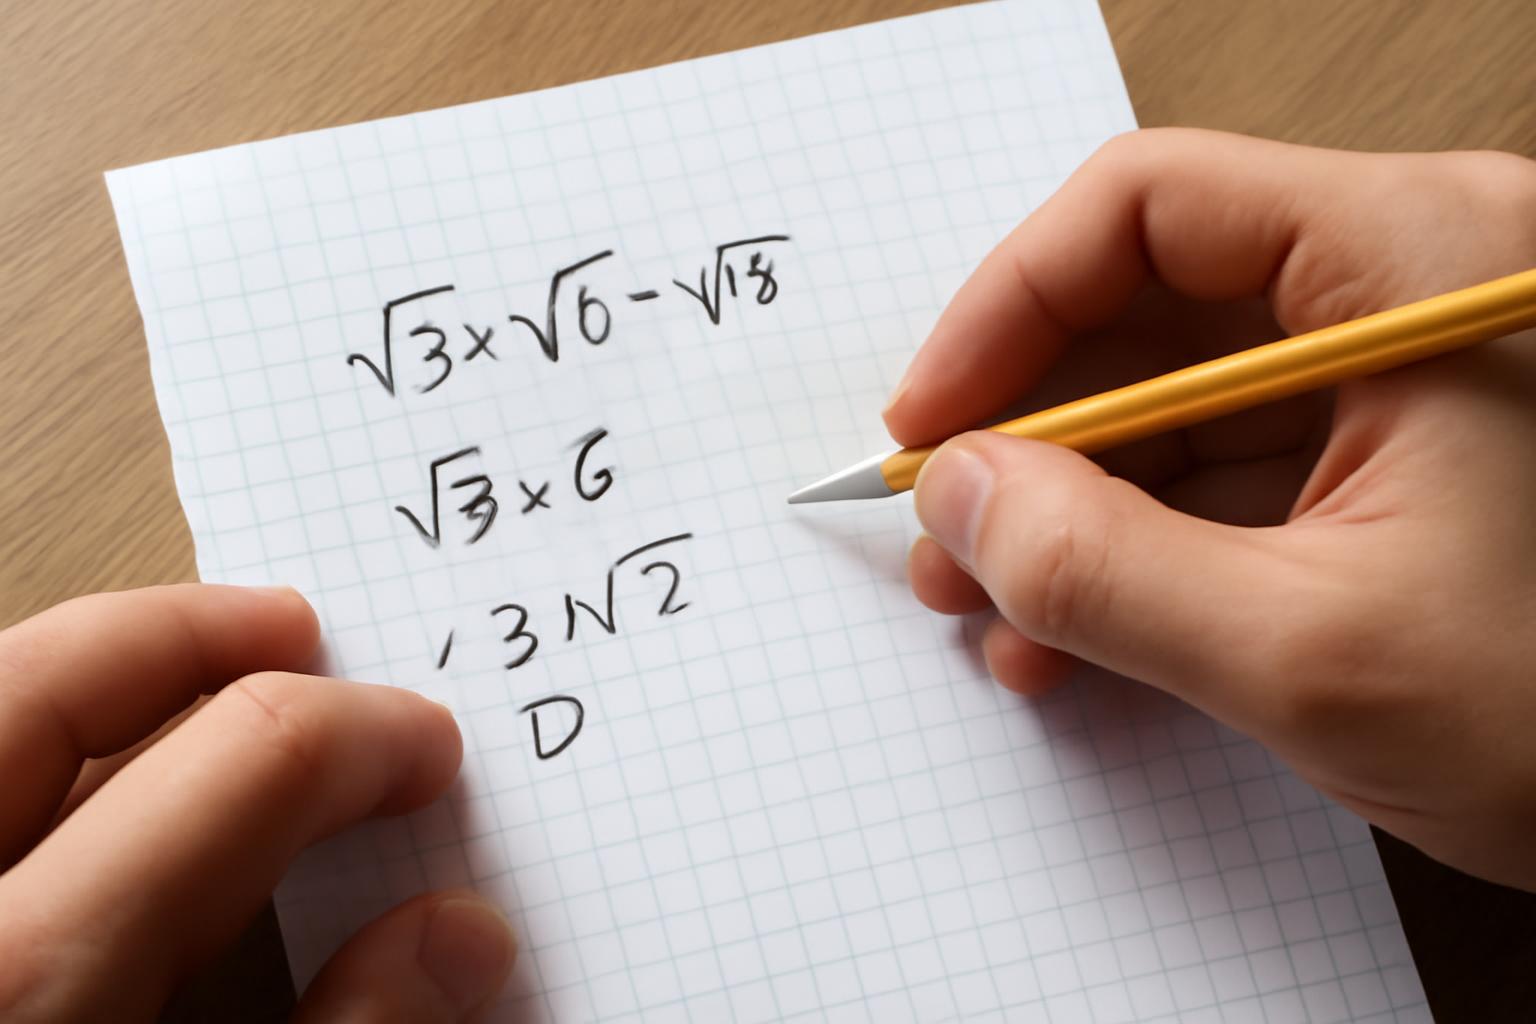 √3 × √6 - √18
√3 × 6
3 √2
D